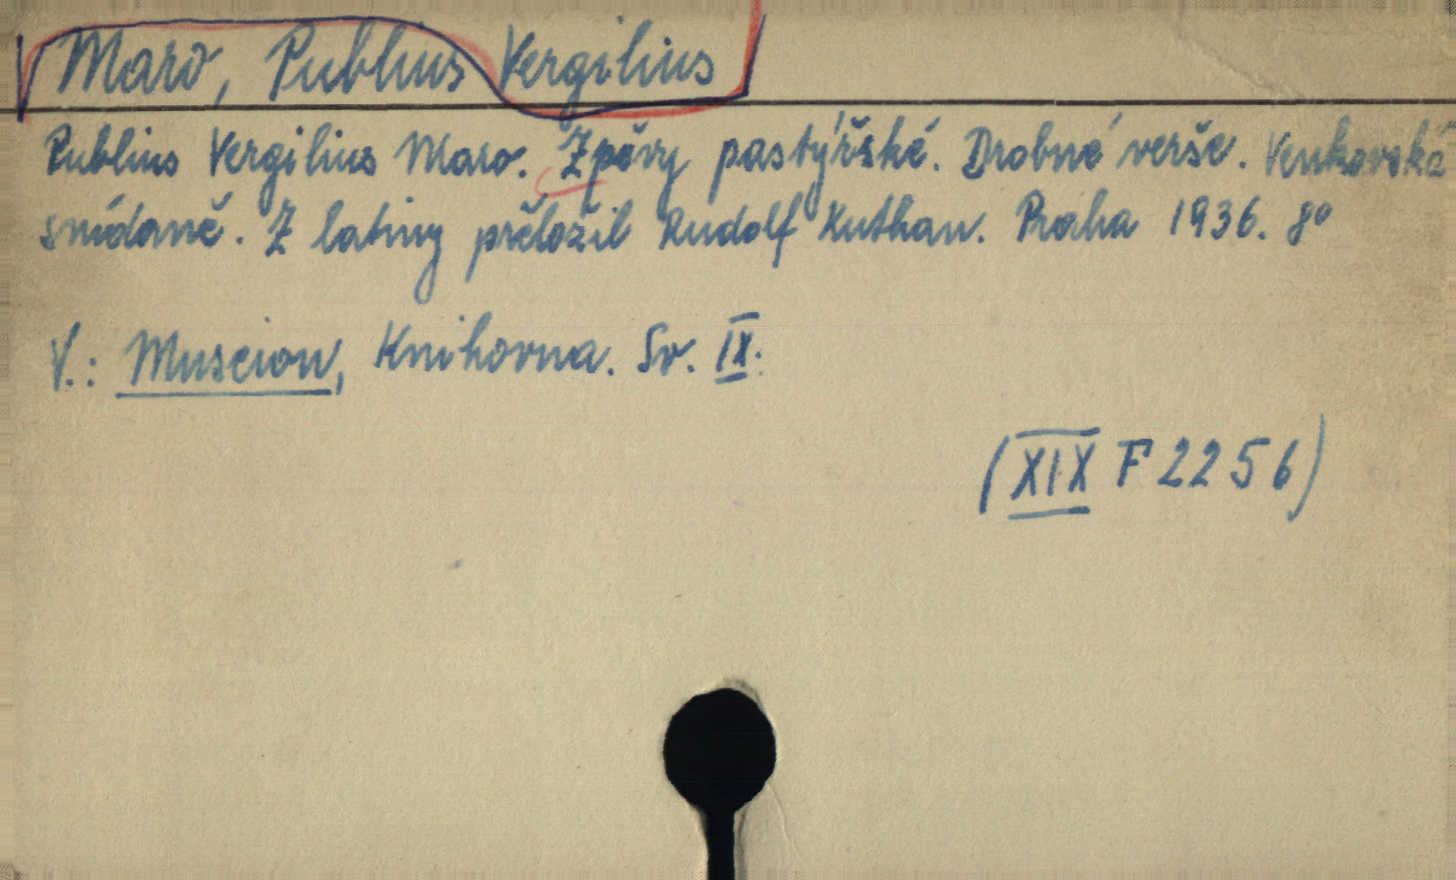 Maro, Publius Vergilius
Publius Vergilius Maro. Zpěvy pastýřské. Drobné verše. Venkovská
snídaně. Z latiny přeložil Rudolf Kuthan. Praha 1936. 8°
V.: Museion, Knihovna. Sv. IX.
(XIX F 2256)